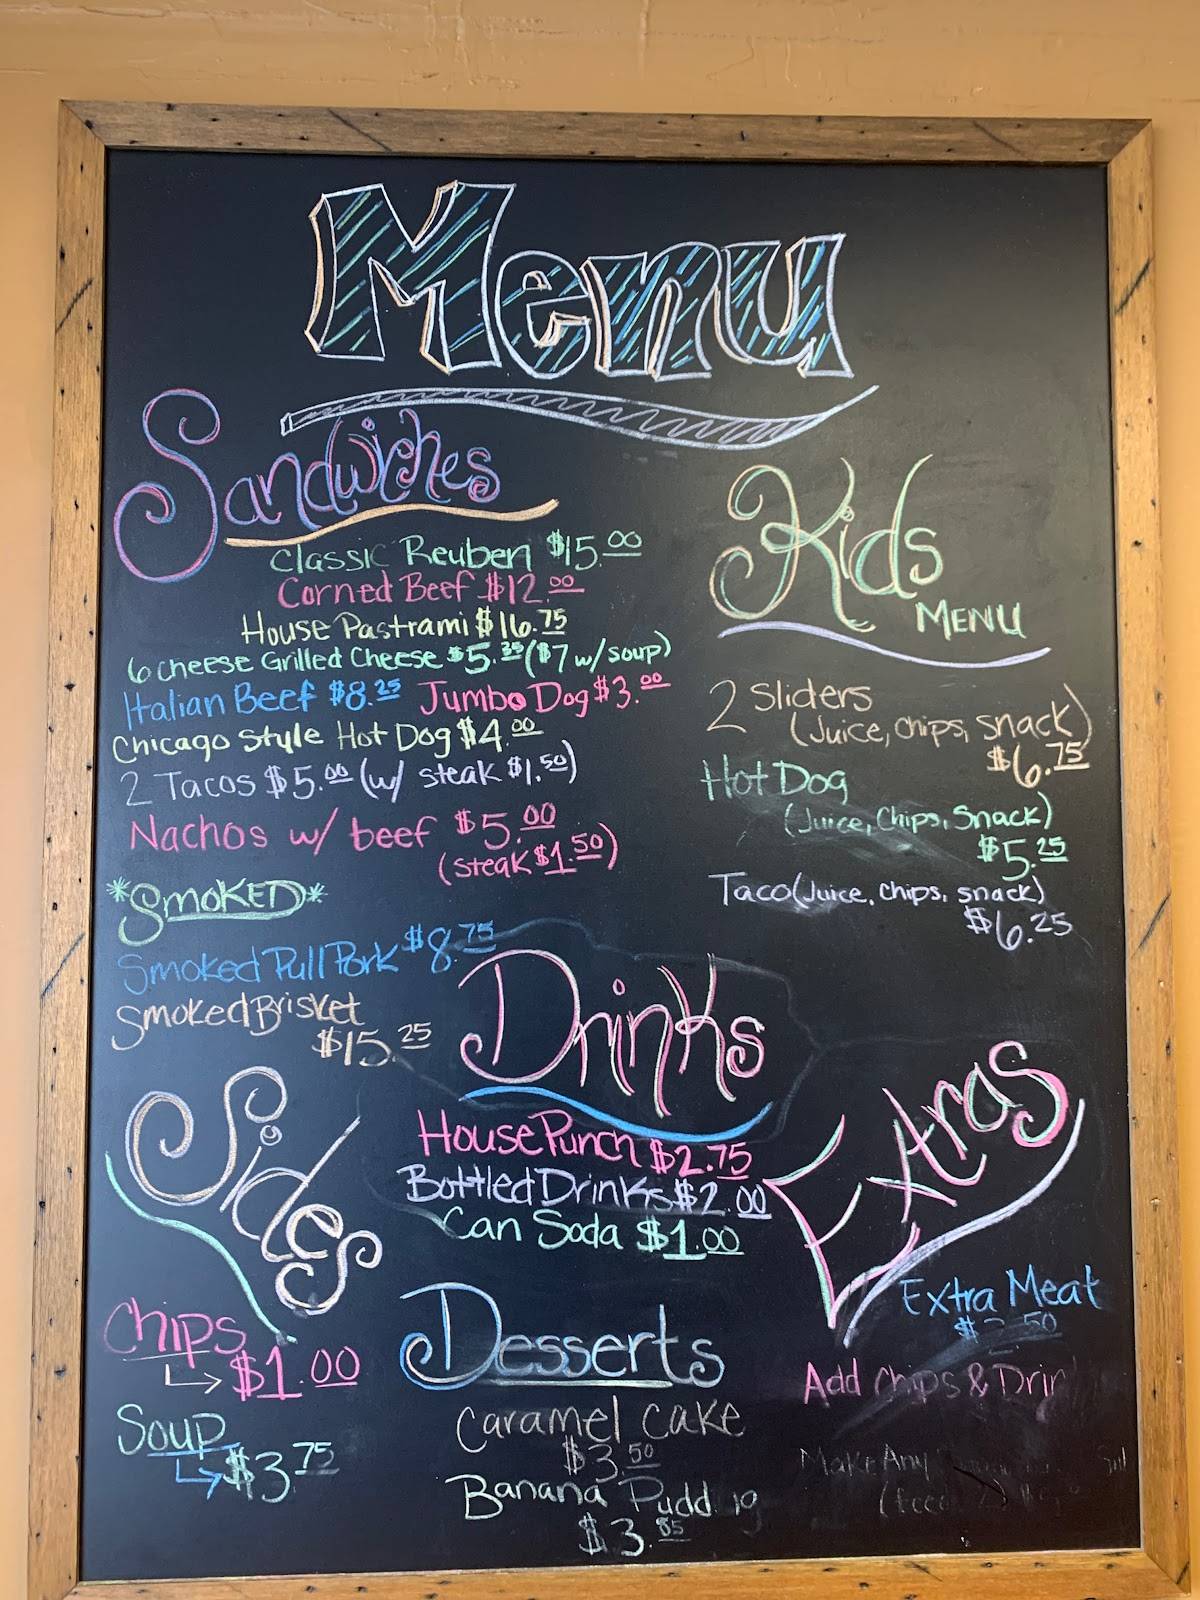 Menu
Sandwiches
Classic Reuben $15.00
Corned Beef $12.00
House Pastrami $16.75
6 cheese Grilled Cheese $5.35 ($7 w/ soup)
Italian Beef $8.25 Jumbo Dog $3.00
Chicago Style Hot Dog $4.00
2 Tacos $5.00 (w/ steak $1.50)
Nachos w/ beef $5.00
(steak $1.50)
*Smoked*
Smoked Pull Pork $8.75
Smoked Brisket
$15.25
Kids
Menu
2 Sliders
(Juice, chips, snack)
$6.75
Hot Dog
(Juice, Chips, Snack)
$5.25
Taco (Juice, chips, snack)
$6.25
Sides
Chips
$1.00
Soup
$3.75
Drinks
House Punch $2.75
Bottled Drinks $2.00
Can Soda $1.00
Desserts
Caramel Cake
$3.50
Banana Pudd g
$3.85
Extras
Extra Meat
Add Chips & Drin
Make Any